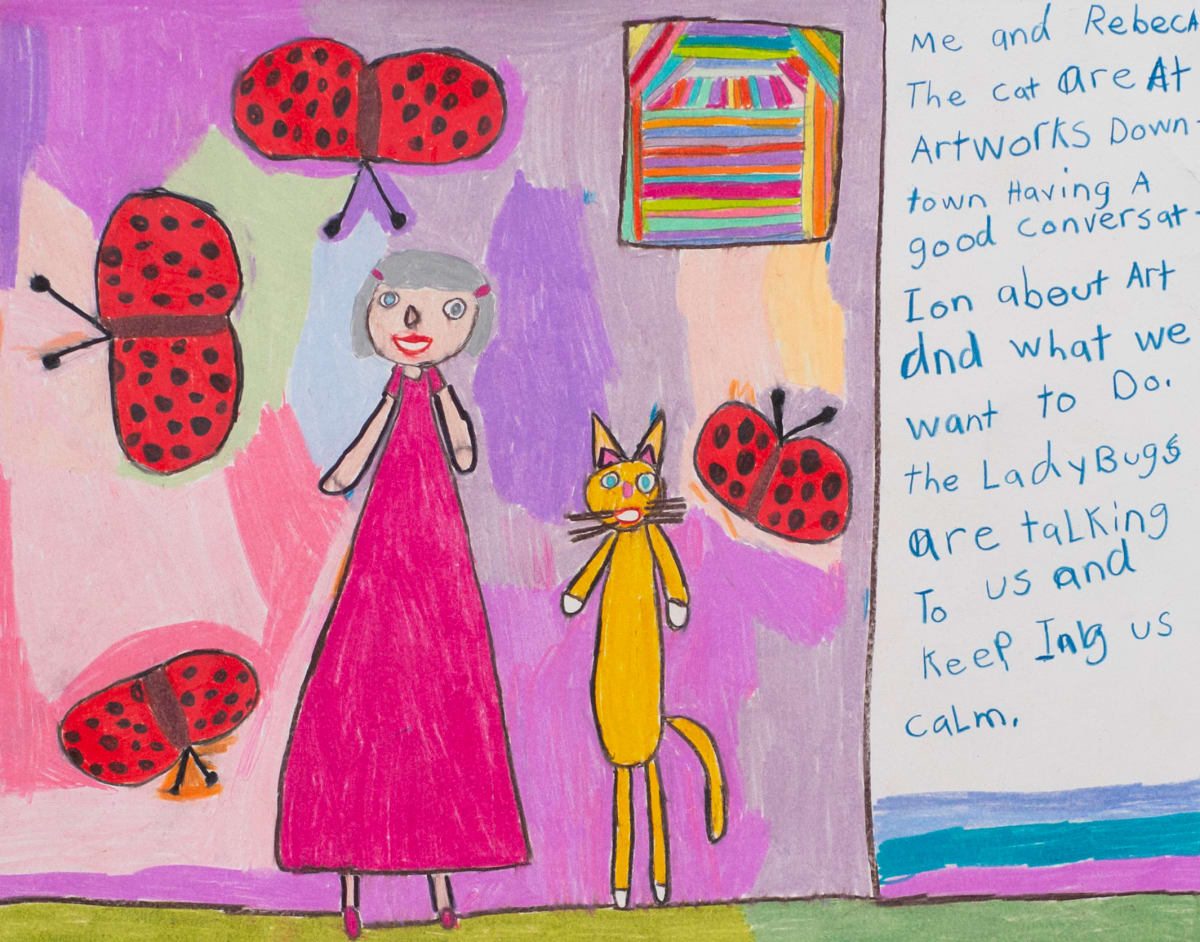 Me and RebecA
The cat are At
Artworks Down-
town Having A
good conversat-
Ion about Art
and what we
want to Do.
the LadyBugs
are taLKing
To us and
KeeP Ing us
caLm.